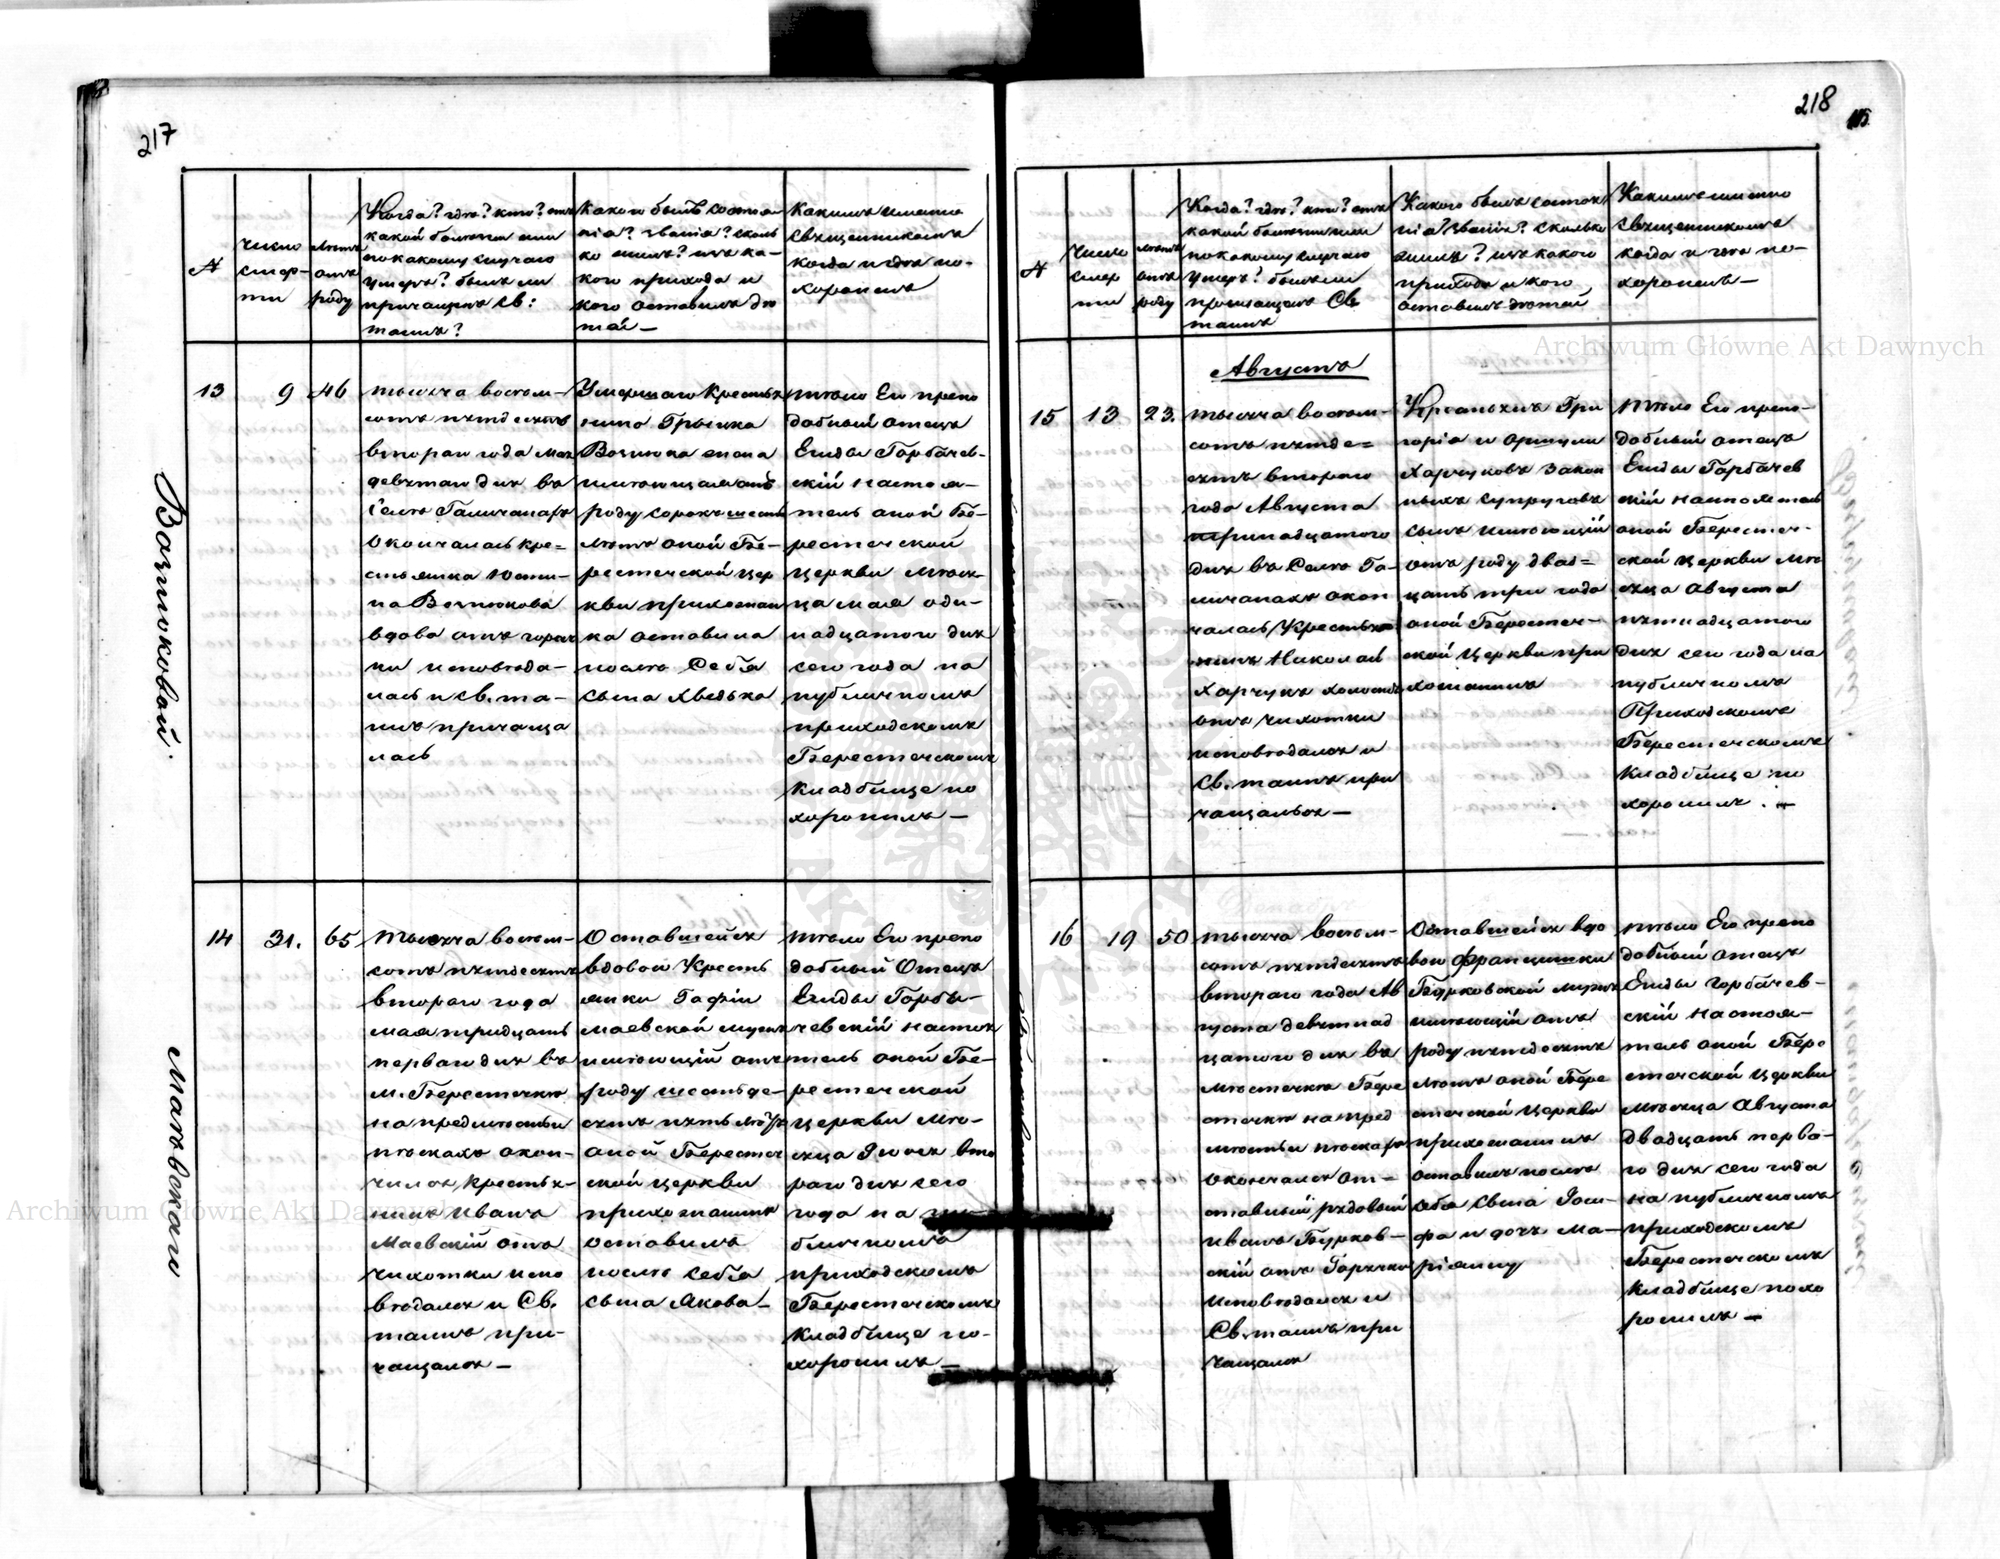 217
№
Число
смер-
ти
лѣтъ
отъ
роду
Когда? гдѣ? кто? отъ
какой болѣзни или
по какому случаю
умеръ? былъ ли
причащенъ Св:
таинъ?
Какого былъ состоя
нія? званія? сколь
ко жилъ? изъ ка-
кого прихода и
кого оставилъ дѣ
тей—
Какимъ именно
Священникомъ
когда и гдѣ по-
хороненъ
Вознюковой.
13
9
46
тысяча восем-
сотъ пятдесятъ
втораго года мая
девятаго дня въ
Селѣ Галичанахъ
окончалась кре=
стьянка Юсти-
на Вознюкова
вдова отъ горяч
ки исповѣда-
лась и св. та-
инъ причаща
лась
Умершаго Крестья
нина Грыцка
Вознюка жена
имѣющая отъ
роду сорокъ шесть
лѣтъ оной Бе-
рестечской цер
кви прихожан
ка оставила
послѣ Себя
сына Хведька
тѣло Ея препо
добный отецъ
Емиды Горбачев-
скій настоя-
тель оной Бе-
рестечской
церкви мѣся-
ца мая оди-
надцатого дня
сего года на
публичномъ
приходскомъ
Берестечскомъ
Кладбище по
хоронилъ—
Маевскаго
14
31.
65
тысяча восем-
сотъ пятдесятъ
втораго года
мая тридцать
перваго дня въ
м. Берестечкѣ
на предмѣстьи
пѣскахъ окон-
чился Крестья-
нинъ Иванъ
Маевскій отъ
чихотки испо
вѣдался и Св.
таинъ при-
чащался—
Оставшейся
вдовой Кресть
янки Гафіи
Маевской мужъ
имѣющій отъ
роду шестьде-
сятъ пять лѣтъ
оной Берестеч
ской церкви
прихожанинъ
оставилъ
послѣ себя
сына Якова—
тѣло Его препо
добный Отецъ
Емиды Горба-
чевскій настоя
тель оной Бе-
рестечской
церкви мѣ-
сяца Іюня вто
раго дня сего
года на пу-
бличномъ
приходскомъ
Берестечскомъ
Кладбище по-
хоронилъ—
218
№
Число
смер
ти
лѣтъ
отъ
роду
Когда? гдѣ? кто? отъ
какой болѣзни или
по какому случаю
умеръ? былъ ли
причащенъ Св
таинъ
Какого былъ состоя
нія? званія? сколько
жилъ? изъ какого
прихода и кого
оставилъ дѣтей
Какимъ именно
Священникомъ
когда и гдѣ по-
хороненъ—
Августъ
15
13
23.
тысяча восем-
сотъ пятде=
сятъ втораго
года Августа
тринадцатого
дня въ Селѣ Га-
личанахъ окон
чалась Крестья
нинъ Николай
Харчукъ холостъ
отъ чихотки
исповѣдался и
Св. таинъ при
чащался—
Крестьянъ Гри
горія и Орищи
Харчуковъ закон
ныхъ супруговъ
сынъ имѣющій
отъ роду двад=
цать три года
оной Берестеч-
ской Церкви при
хожанинъ
тѣло Его препо-
добный отецъ
Емиды Горбачев
скій настоятель
оной Берестеч-
ской церкви мѣ
сяца Августа
пятнадцатого
дня сего года на
публичномъ
Приходскомъ
Берестечскомъ
Кладбище по
хоронилъ.—
16
19
50
тысяча восем-
сотъ пятдесятъ
втораго года Ав
густа девятнад
цатого дня въ
мѣстечкѣ Бере
стечкѣ на пред
мѣстьи пѣскахъ
окончался От-
ставный рядовый
Иванъ Бурков-
скій отъ Горячки
исповѣдался и
Св. таинъ при
чащался
Оставшейся вдо
вой Францишки
Бурковской мужъ
имѣющій отъ
роду пятдесятъ
лѣтъ оной Бере
стечской Церкви
прихожанинъ
оставилъ послѣ
себя сына Іоси-
фа и дочь Ма-
ріянну
тѣло Его препо
добный отецъ
Емиды Горбачев-
скій настоя-
тель оной Бере
стечской Церкви
мѣсяца Августа
двадцать перва-
го дня сего года
на публичномъ
приходскомъ
Берестечскомъ
Кладбище похо
ронилъ—
Archiwum Główne Akt Dawnych
Archiwum Główne Akt Dawnych